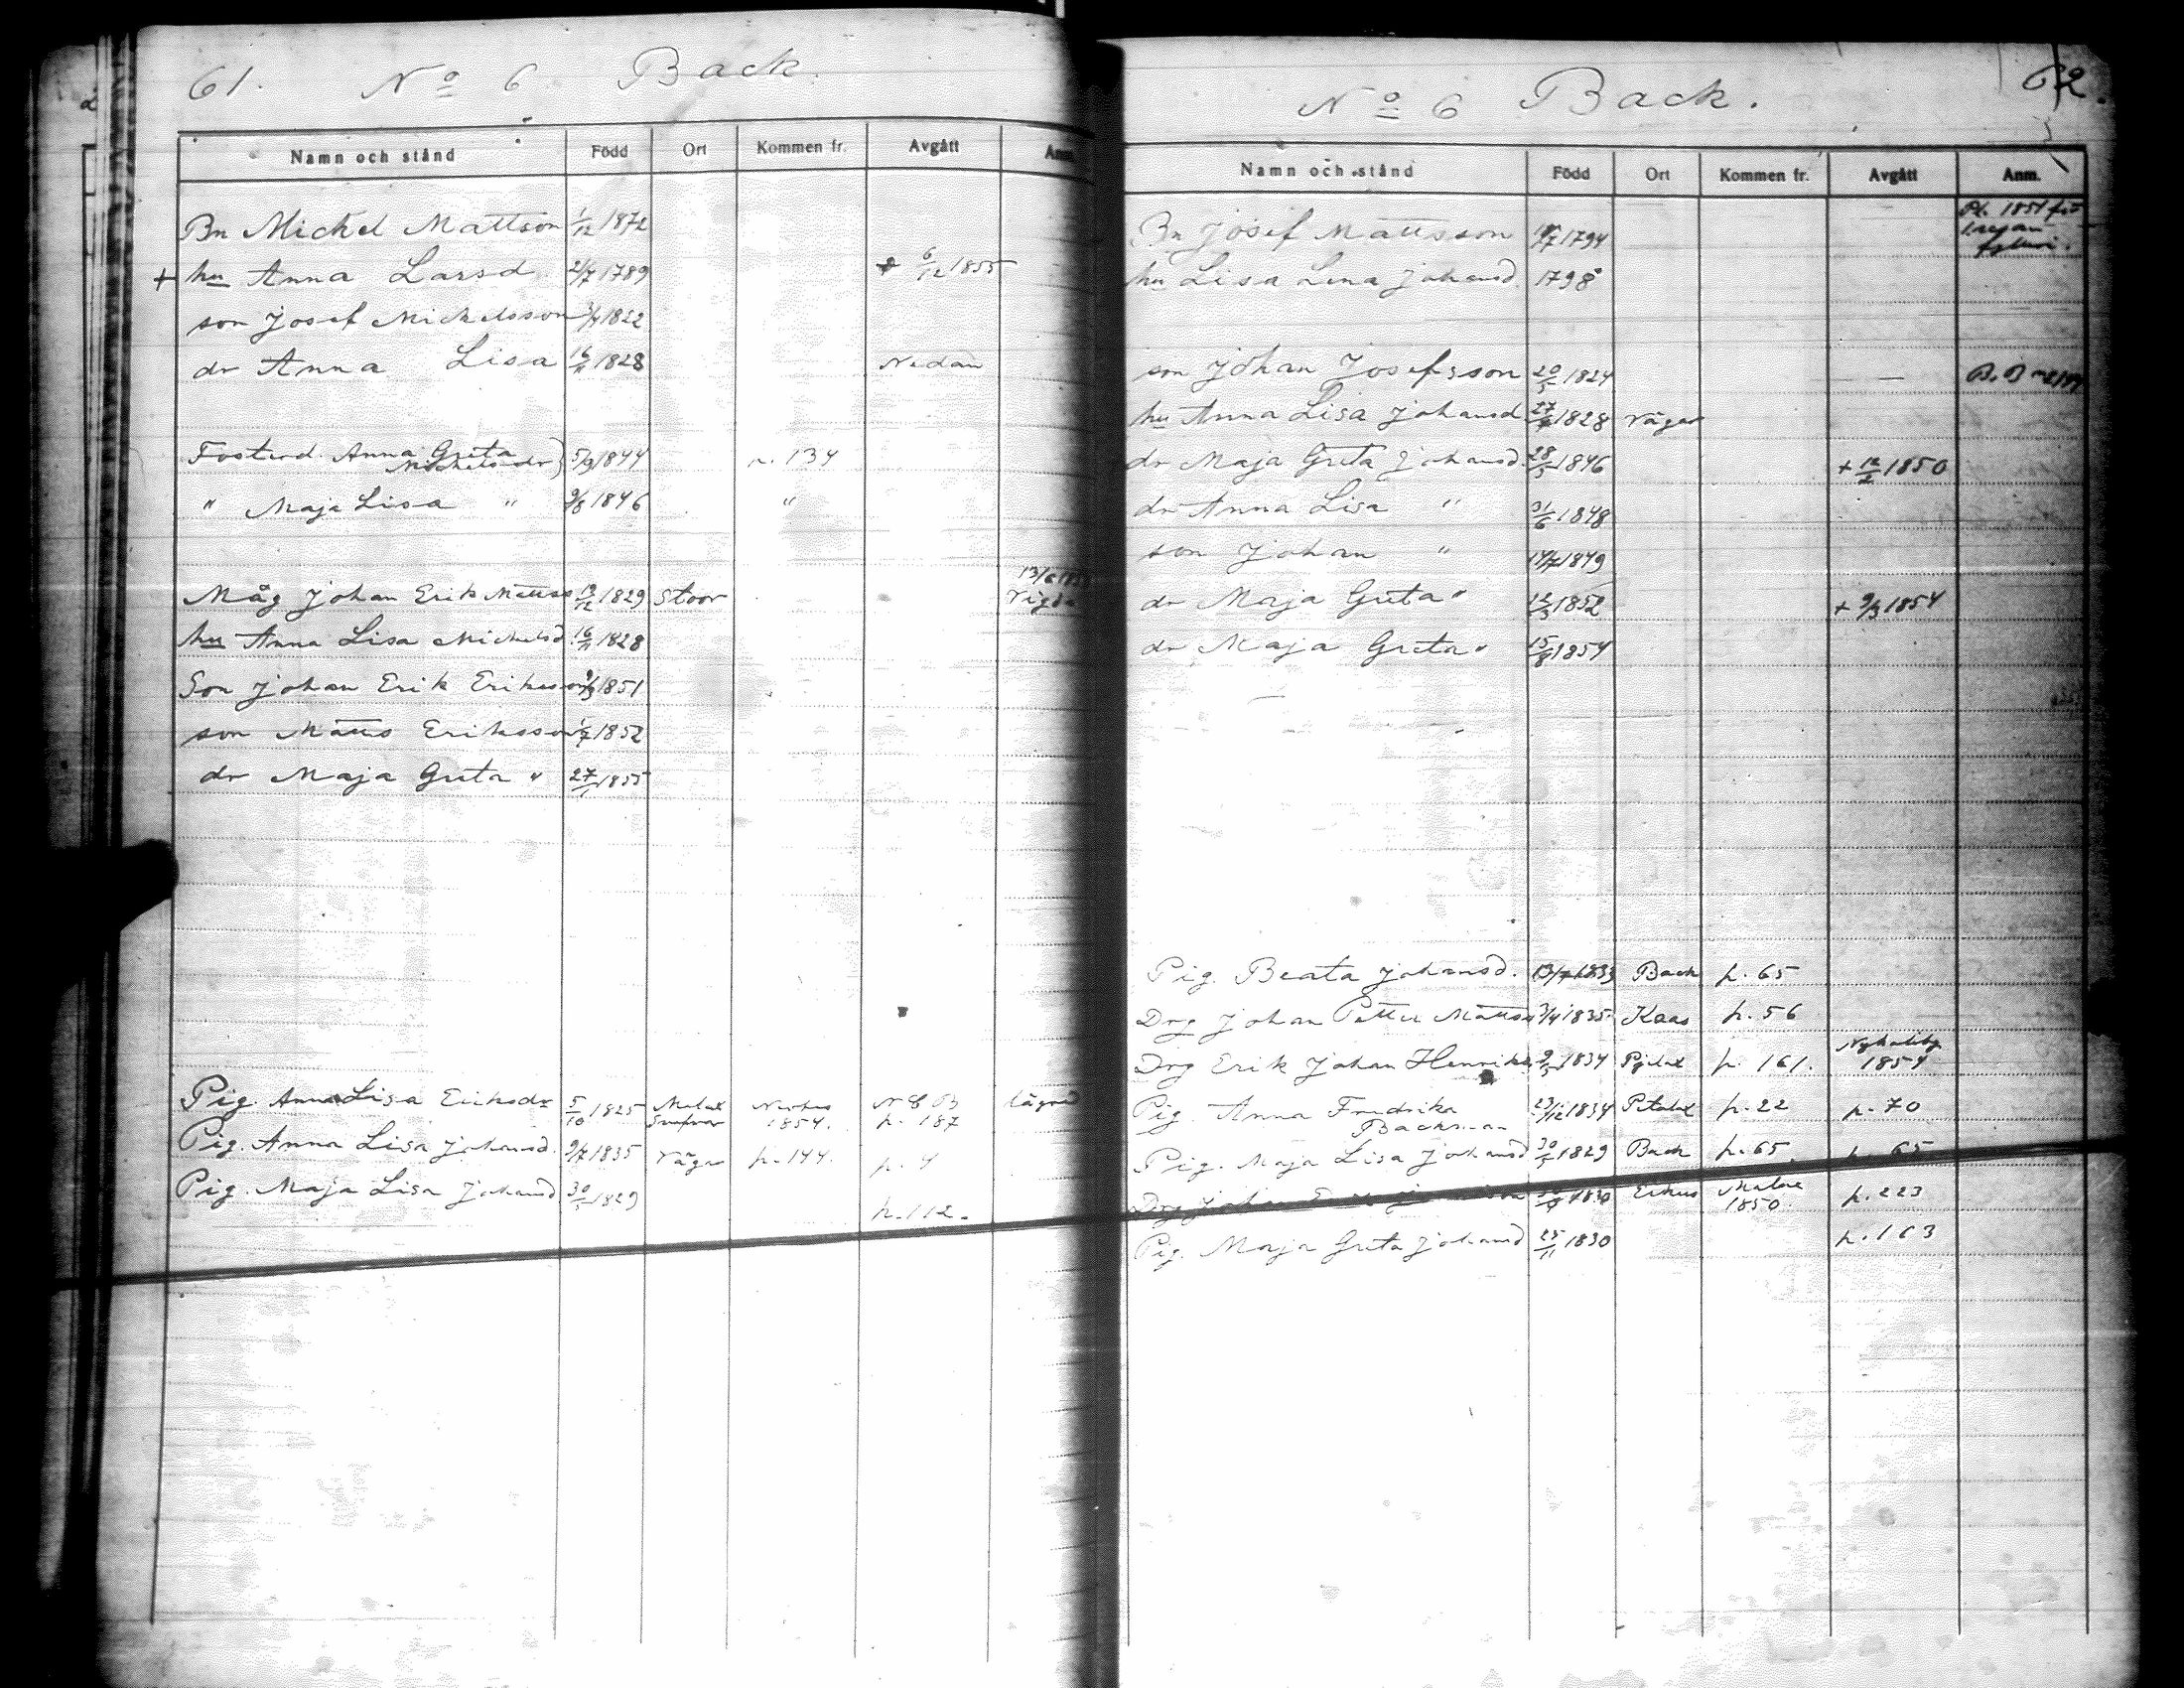 61. No 6 Back.
Namn och stånd Född Ort Kommen fr. Avgått Anm.
Bn Mickel Mattson 1/12 1872
+ hu Anna Larsd. 2/7 1789 + 6/12 1855
son Josef Mickelsson 3/4 1822
dr Anna Lisa 16/11 1828 Nedan
Fosterd. Anna Greta 5/9 1844 p. 134
Mickelsdr
" Maja Lisa " 9/8 1846 "
13/6
Måg Johan Erik Mattss 19/12 1829 Stoor Vigda
hu Anna Lisa Mickelsd. 16/11 1828
Son Johan Erik Eriksson 1851
son Matts Eriksson 1852
dr Maja Greta " 27/1 1855
Pig. Anna Lisa Eriksdr 5/10 1825 Malax 1854. p. 187
Pig. Anna Lisa Johansd. 9/7 1835 Våger p. 144. p. 4
Pig. Maja Lisa Johansd 30/5 1829 p. 112.
62.
No 6 Back.
Namn och stånd Född Ort Kommen fr. Avgått Anm.
Bn Josef Mattsson 1794 1851
hu Lisa Lena Johansd. 1798
son Johan Josefsson 20/5 1824 B. B
hu Anna Lisa Johansd 27/4 1828 Våger
dr Maja Greta Johansd. 28/5 1846 + 12/2 1850
dr Anna Lisa " 31/6 1848
son Johan " 14/7 1849
dr Maja Greta " 12/3 1852 + 9/3 1854
dr Maja Greta " 15/8 1854
Pig. Beata Johansd. 13/7 1833 Back p. 65
Drg Johan Petter Mattss 3/4 1835 Kaas p. 56
Drg Erik Johan Henriks. 9/5 1834 Pjelax p. 161. Nykarleby
1854
Pig. Anna Fredrika 23/12 1834 Petalax p. 22 p. 70
Backman
Pig. Maja Lisa Johansd 30/5 1829 Back p. 65. p. 65
Drg Johan 1830 1850. p. 223
Pig. Maja Greta Johansd 25/11 1830 p. 163